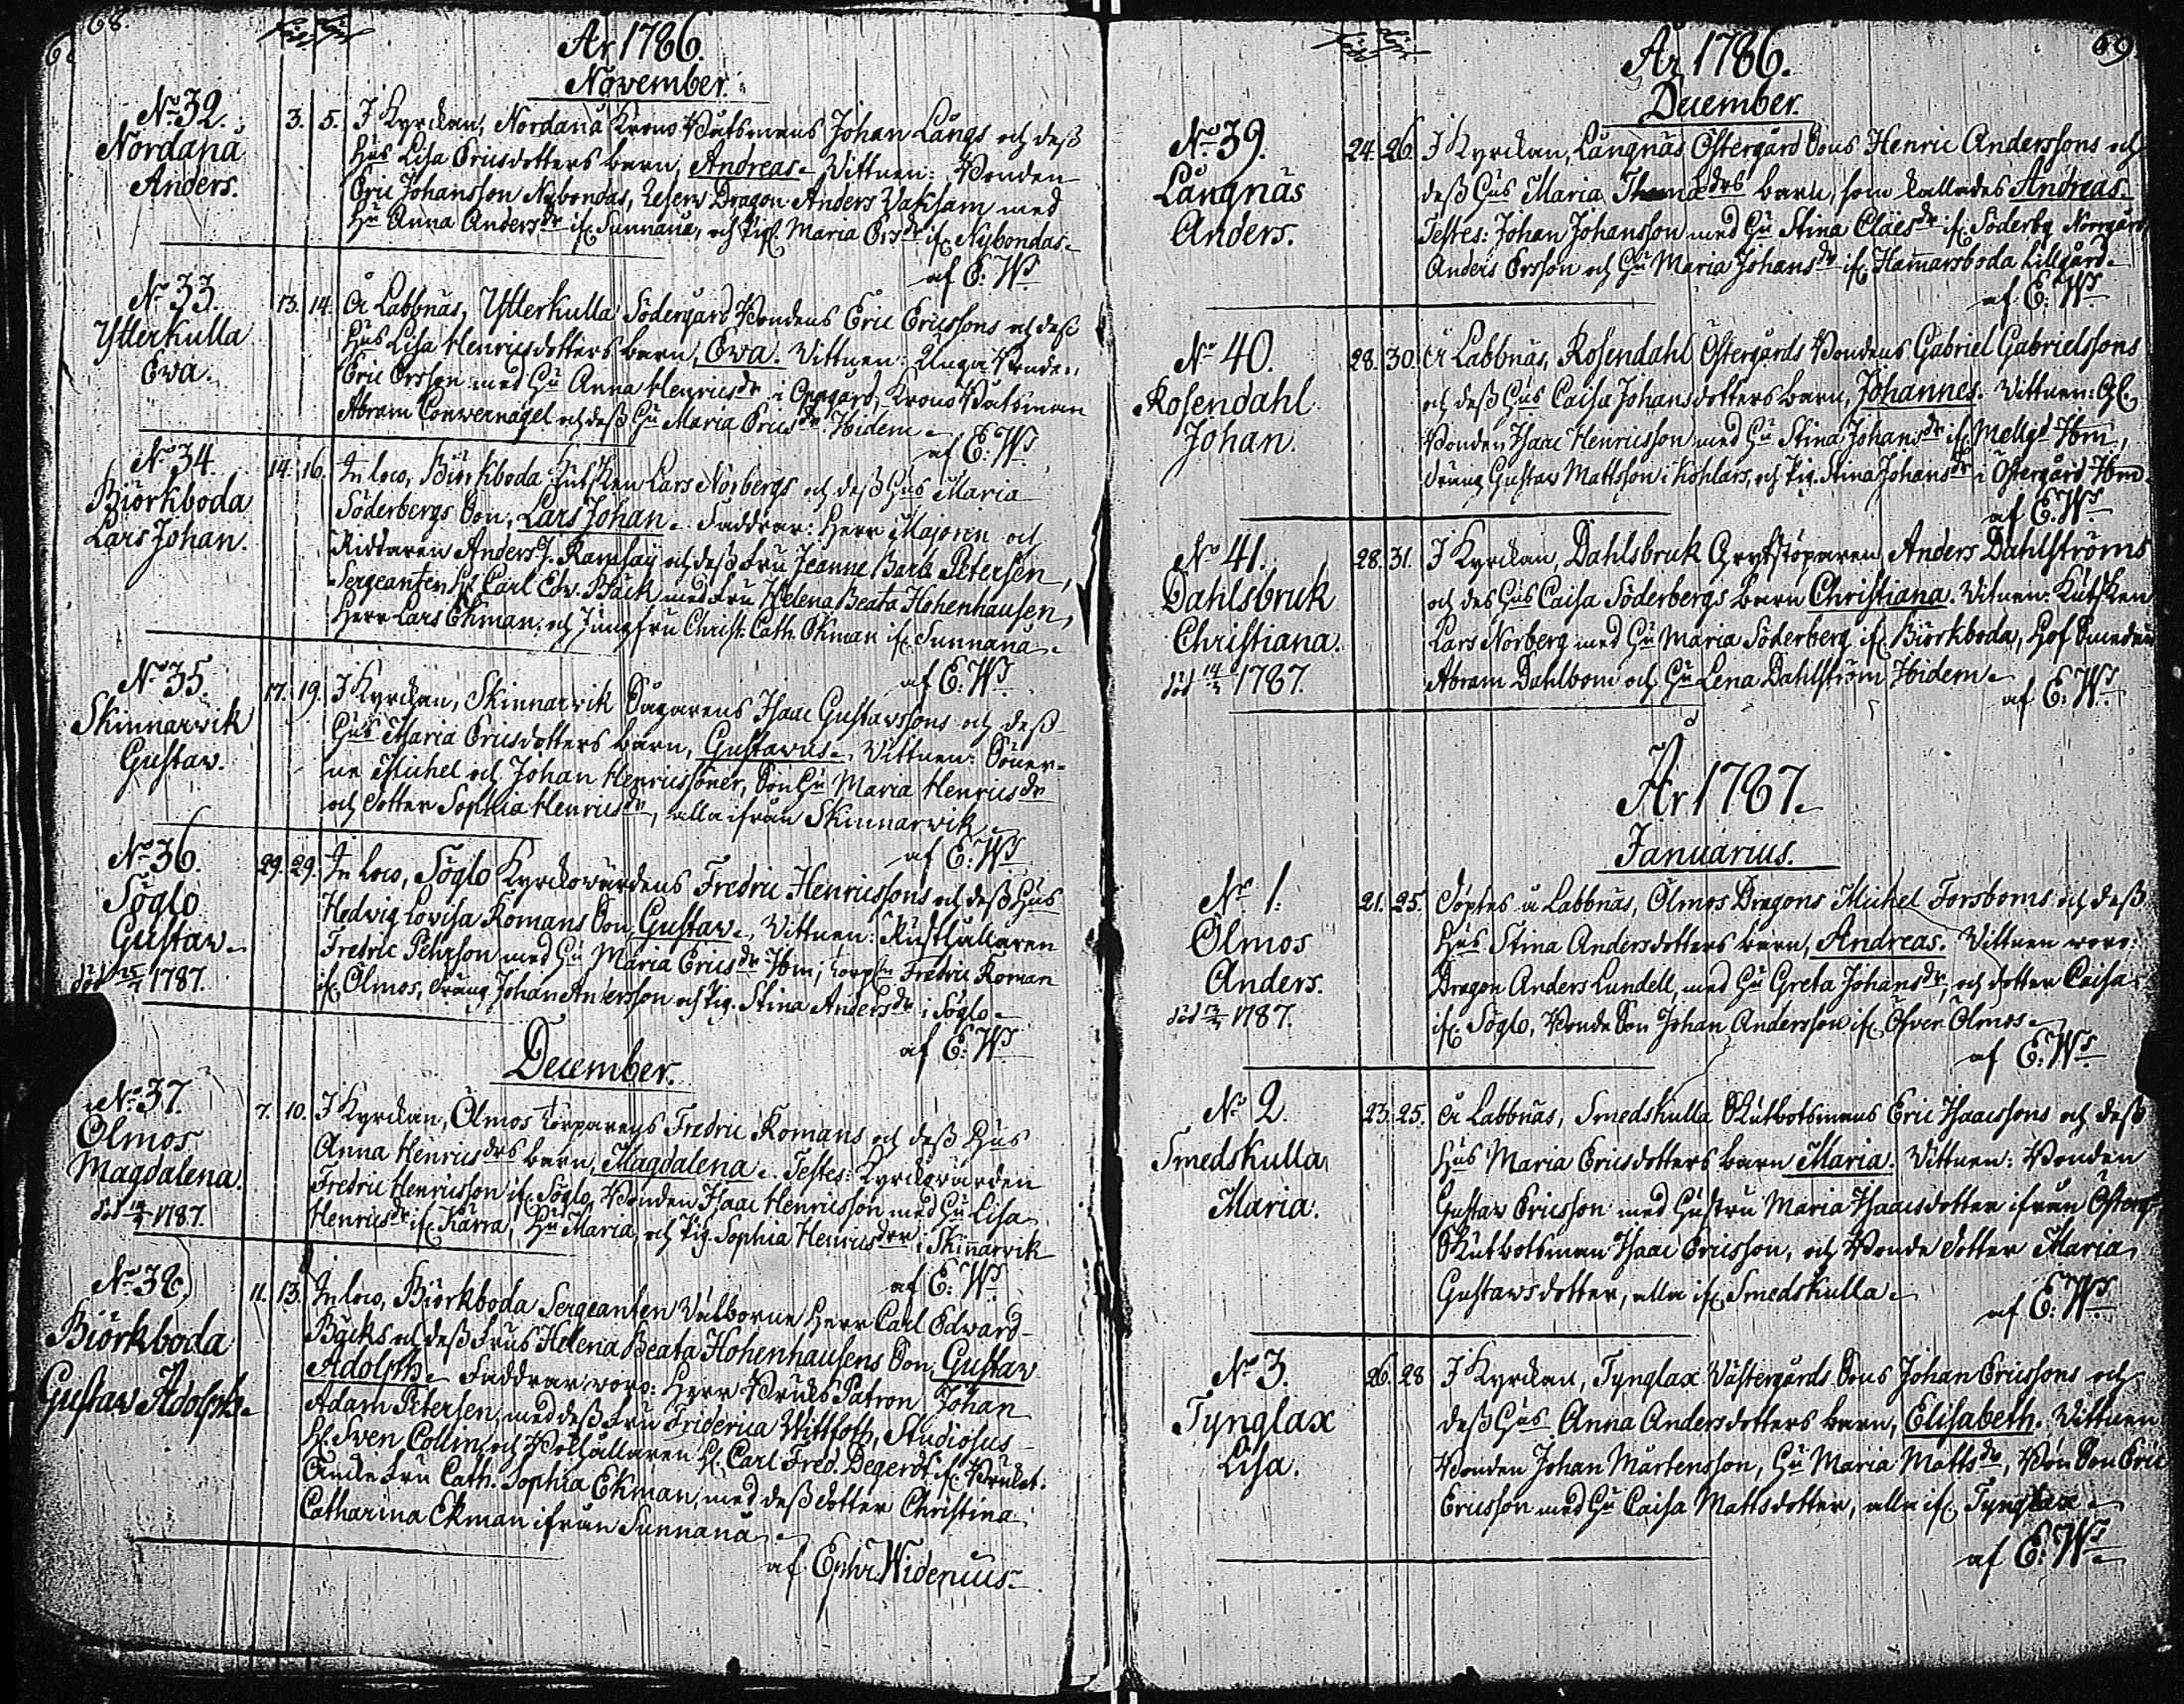 68.
År 1786.
November.
No 32.
Nordanå
Anders.
3. 5. I Kyrckan, Nordanå Krono Båtsmans Johan Långs och deß
Hus Lisa Ericsdotters barn, Andreas. Vittnen: Bonden
Eric Johansson Nybondas, Reserv Dragon Anders Vaksam med
Hu Anna Andersdr if. Sunnanå, och Pig. Maria Ersdr if. Nybondas.
af E: Ws
No 33.
Ytterkulla
Ewa.
13. 14. å Labbnäs, Ytterkulla Södergård Bondens Eric Ericssons och deß
Hus Lisa Henricsdotters barn, Ewa. Vittnen: Unga Bonden
Eric Ersson med Hu Anna Henricsdr i Oppgård, Krono Båtsman
Abram Conwernagel och deß Hu Maria Ericsdr Ibidem.
af E: Ws
No 34.
Biörkboda
Lars Johan.
14. 16. In loco, Biörkboda Kutsken Lars Norbergs och deß Hus Maria
Söderbergs Son, Lars Johan. Faddrar: Herr Majoren och
Riddaren Anders J. Ramsay och deß Fru Jeanne Barb. Petersen,
Sergeanten H. Carl Edv. Bäck med Fru Helena Beata Hohenhausen,
Herr Lars Ekman, och Jungfru Christ. Cath. Ekman if. Sunnanå.
af E: Ws
No 35.
Skinnarvik
Gustav.
17. 19. I Kyrckan, Skinnarvik Sågarens Isaac Gustavssons och deß
Hus Maria Ericsdotters barn, Gustavus. Vittnen: Söner-
ne Michel och Johan Henricssöner, Son Hu Maria Henricsdr
och dotter Sophia Henricsdr, alla ifrån Skinnarwik.
af E: Ws
No 36.
Söglo
Gustav.
död 1787.
29. 29. In loco, Söglo Kyrckowärdens Fredric Henricssons och deß Hus
Hedvig Lovisa Romans Son, Gustav. Vittnen: Rusthållaren
Fredric Pehrson med Hu Maria Ericsdr Ibm, Fredric Roman
if. Ölmos, dräng Johan Andersson och Pig. Stina Andersdr i Söglo.
af E: Ws
December.
No 37.
Ölmos
Magdalena.
död 1787.
7. 10. I Kyrckan, Ölmos torparens Fredric Romans och deß Hus
Anna Henricsdrs barn, Magdalena. Testes: Kyrckovärden
Fredric Henricsson if. Söglo, Bonden Isaac Henricsson med Hu Lisa
Henricsdr if. Kårra, Hu Maria, och Pig. Sophia Henricsdrr i Skinnarvik
af E: Ws
No 38.
Biörkboda
Gustav Adolph.
11. 13. In loco, Biörkboda Sergeanten Välborne Herr Carl Edvard
Bäcks och deß Frus Helena Beata Hohenhausens Son, Gustav
Adolph. Faddrar woro: Herr Bruks Patron Johan
Adam Petersen, med deß Fru Friderica Wittfoth, Studiosus
H. Sven Collin, och Bokhållaren H. Carl Fred. Degerdt if. Bruket.
Encke Fru Cath. Sophia Ekman, med deß dotter Christina
Catharina Ekman ifrån Sunnanå.
af Ephr. Widenius.
69.
År 1786.
December.
No 39.
Långnäs
Anders.
24. 26. I Kyrckan, Långnäs Östergård Sons Henric Anderssons och
deß Hus Maria drs barn, som kallades Andreas.
Testes: Johan Johansson med Hu Stina Claesdr if. Söderby Norrgård,
Anders Ersson och Hu Maria Johansdr if. Hammarsboda Lillgård.
af E: Ws
No 40.
Rosendahl
Johan.
28. 30. å Labbnäs, Rosendahl Östergårds Bondens Gabriel Gabrielssons
och deß Hus Caisa Johansdotters barn, Johannes. Vittnen: Gl.
Bonden Isaac Henricsson med Hu Stina Johansdr if. Mellgd Ibm,
dräng Gustav Mattsson i Kohlars, och Pig. Stina Johansdr i Östergård Ibm.
af E: Ws
No 41.
Dahlsbruk
Christiana.
död 14/3 1787.
28. 31. I Kyrckan, Dahlsbruk Grytstöparen Anders Dahlströms
och des Hus Caisa Söderbergs barn Christiana. Vitnen: Kutsken
Lars Norberg med Hu Maria Söderberg if. Biörkboda, Hof Smeden
Abram Dahlbom och Hu Lena Dahlström Ibidem.
af E: Ws
År 1787.
Januarius.
No 1.
Ölmos
Anders.
död 1787.
21. 25. Döptes å Labbnäs, Ölmos Dragons Michel Forsboms och deß
Hus Stina Andersdotters barn, Andreas. Vittnen woro:
Dragon Anders Lundell, med Hu Greta Johansdr, och dotter Caisa
if. Söglo, Bonde Son Johan Andersson if. Öfver Ölmos.
af E: Ws
No 2.
Smedskulla
Maria.
23. 25. å Labbnäs, Smedskulla Skutbotsmans Eric Isaacssons och deß
Hus Maria Ericsdotters barn Maria. Vittnen: Bonden
Gustav Ericsson med Hustru Maria Isaacsdotter ifrån Österg.
Skutbotsman Isaac Ericsson, och Bonde dotter Maria
Gustavsdotter, alla if. Smedskulla.
af E: Ws
No 3.
Tynglax
Lisa.
26. 28 I Kyrckan, Tynglax Västergårds Sons Johan Ericssons och
deß Hus Anna Andersdotters barn, Elisabeth. Vittnen
Bonden Johan Mårtensson, Hu Maria Mattsdr, Bon Son Eric
Ericsson med Hu Caisa Mattsdotter, alla if. Tynglax.
af E: Ws